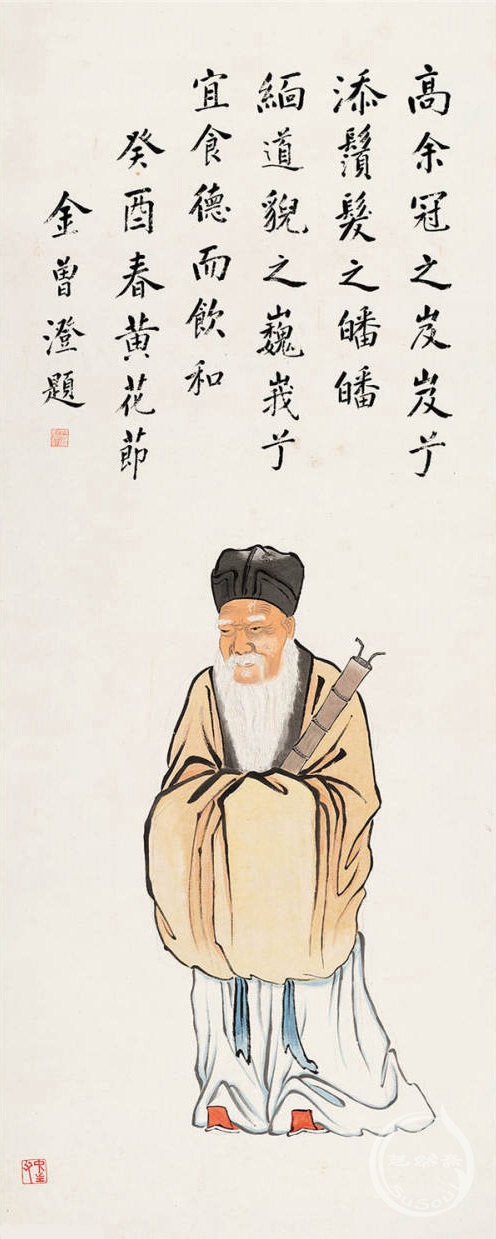 高余冠之岌岌兮
添鬚髮之皤皤
緬道貌之巍峩兮
宜食德而飲和
癸酉春黄花節
金曾澄題